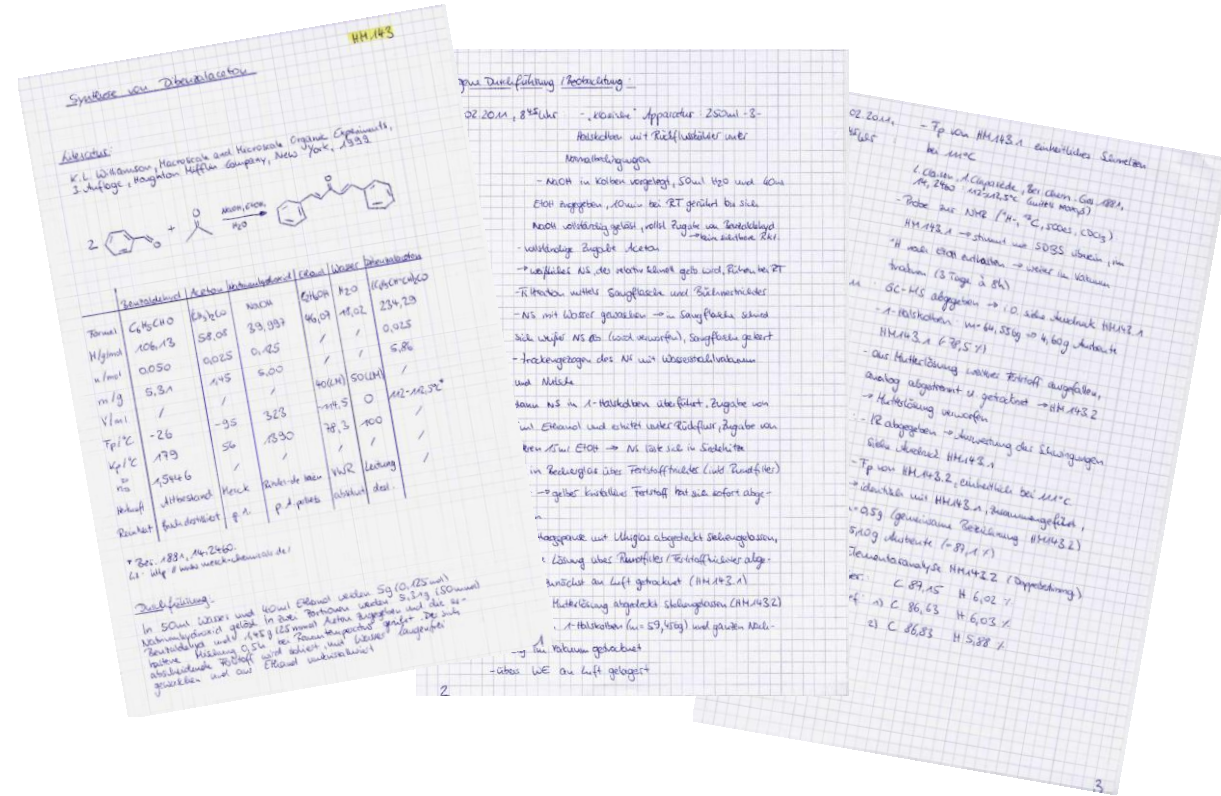 HM 143
Synthese von Dibenzalaceton
Literatur:
K.L. Williamson, Macroscale and Microscale Organic Experiments,
3. Auflage, Houghton Mifflin Company, New York, 1999
2 + NaOH, EtOH, H2O
Benzaldehyd Aceton Natriumhydroxid Ethanol Wasser Dibenzalaceton
Formel C6H5CHO (CH3)2CO NaOH C2H5OH H2O (C6H5CH=CH)2CO
M/g/mol 106,13 58,08 39,997 46,07 18,02 234,29
n/mol 0,050 0,025 0,125 / / 0,025
m/g 5,31 1,45 5,00 / / 5,86
V/ml / / / 40(LM) 50(LM) /
Tp/°C -26 -95 323 -114,5 0 112-112,5°C*
Kp/°C 179 56 1390 78,3 100 /
1,5446 / / / /
Herkunft Altbestand Merck VWR Leitung /
Reinheit frisch destilliert p.a. p.a. pellets absolut dest. /
* Ber. 1881, 14, 2460.
Durchführung:
In 50ml Wasser und 40ml Ethanol werden 5g (0,125mol)
Natriumhydroxid gelöst. In zwei Portionen werden 5,31g (50mmol)
Benzaldehyd und 1,45g (25mmol) Aceton zugegeben und die
Mischung 0,5h bei Raumtemperatur gerührt. Der sich
abscheidende Feststoff wird isoliert, mit Wasser laugenfrei
gewaschen und aus Ethanol umkristallisiert
Durchführung / Beobachtung:
02.2011, 8 45 Uhr - "klassische" Apparatur 250ml-3-
Halskolben mit Rückflusskühler unter
Normalbedingungen
- NaOH in Kolben vorgelegt, 50ml H2O und 40ml
EtOH zugegeben, 10min bei RT gerührt bis sich
NaOH vollständig gelöst, vollst. Zugabe von Benzaldehyd
→ kein sichtbare Rkt.
- vollständige Zugabe Aceton
→ weißlicher NS der relativ schnell gelb wird, Rühren bei RT
- Filtration mittels Saugflasche und Büchnertrichter
- NS mit Wasser gewaschen → in Saugflasche schied
sich weißer NS ab (wird verworfen), Saugflasche geleert
- trockengezogen des NS mit Wasserstrahlvakuum
und Nutsche
dann NS in 1-Halskolben überführt, Zugabe von
ml Ethanol und erhitzt unter Rückfluss, Zugabe von
15ml EtOH → NS löste sich in Siedehitze
in Becherglas über Feststofftrichter (inkl. Rundfilter)
→ gelber kristalliner Feststoff hat sich sofort abge-
mit Uhrglas abgedeckt stehengelassen,
Lösung über Rundfilter/Feststofftrichter abge-
zunächst an Luft getrocknet (HM143.1)
Mutterlösung abgedeckt stehengelassen (HM143.2)
1-Halskolben (m= 59,456g) und ganzen Nach-
im Vakuum getrocknet
- übers WE an Luft gelagert
2
02.2011, - Tp von HM143.1 einheitliches Schmelzen
45 Uhr bei 111°C
L. Claisen, A. Claparède, Ber. Chem. Ges. 1881,
14, 2460 112-112,5°C
- Probe zur NMR (1H-, 13C, 500er, CDCl3)
HM143.1 → stimmt mit SDBS überein, im
1H noch EtOH enthalten → weiter im Vakuum
trocknen (3 Tage à 8h)
- GC-MS abgegeben → i.O. siehe Ausdruck HM143.1
- 1-Halskolben: m= 64,056g → 4,60g Ausbeute
HM143.1 (≙78,5 %)
- aus Mutterlösung weiterer Feststoff ausgefallen,
analog abgetrennt u. getrocknet → HM143.2
→ Mutterlösung verworfen
- IR abgegeben → Auswertung der Schwingungen
siehe Ausdruck HM143.1
- Tp von HM143.2, einheitlich bei 111°C
→ identisch mit HM143.1, zusammengeführt,
0,5g (gemeinsame Bezeichnung HM143.2)
5,10g Ausbeute (≙87,1 %)
Elementaranalyse HM143.2 (Doppelbestimmung)
ber.: C 89,15 H 6,02 %
1) C 86,63 H 6,03 %
2) C 86,83 H 5,88 %
3